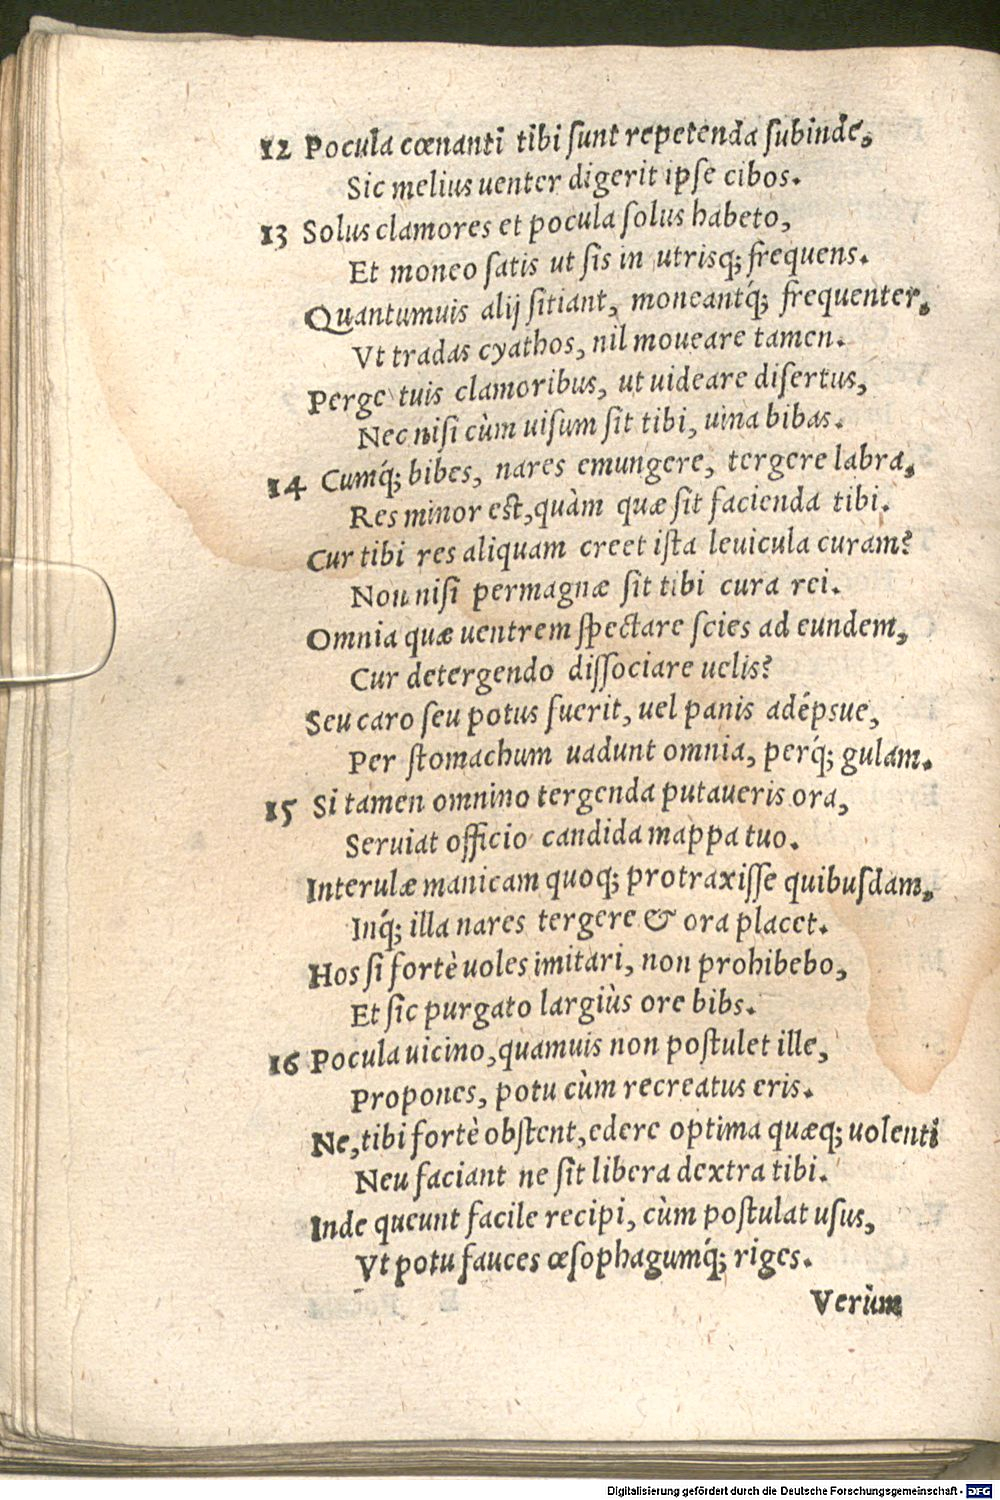 12 Pocula cœnanti tibi ſunt repetenda ſubinde,
Sic melius uenter digerit ipſe cibos.
13 Solus clamores et pocula ſolus habeto,
Et moneo ſatis ut ſis in utrisq; frequens.
Quantumuis alij ſitiant, moneantq́; frequenter,
Vt tradas cyathos, nil moueare tamen.
Perge tuis clamoribus, ut uideare diſertus,
Nec niſi cùm uiſum ſit tibi, uina bibas.
14 Cumq́; bibes, nares emungere, tergere labra,
Res minor eſt, quàm quæ ſit facienda tibi.
Cur tibi res aliquam creet iſta leuicula curam?
Non niſi permagnæ ſit tibi cura rei.
Omnia quæ uentrem ſpectare ſcies ad eundem,
Cur detergendo diſſociare uelis?
Seu caro ſeu potus fuerit, uel panis adépsue,
Per ſtomachum uadunt omnia, perq́; gulam.
15 Si tamen omnino tergenda putaueris ora,
Seruiat officio candida mappa tuo.
Interulæ manicam quoq; protraxiſſe quibuſdam,
Inq́; illa nares tergere & ora placet.
Hos ſi fortè uoles imitari, non prohibebo,
Et ſic purgato largiùs ore bibs.
16 Pocula uicino, quamuis non poſtulet ille,
Propones, potu cùm recreatus eris.
Ne, tibi fortè obſtent, edere optima quæq; uolenti
Neu faciant ne ſit libera dextra tibi.
Inde queunt facile recipi, cùm poſtulat uſus,
Vt potu fauces œſophagumq́; riges.
Verùm
Digitalisierung gefördert durch die Deutsche Forschungsgemeinschaft - DFG